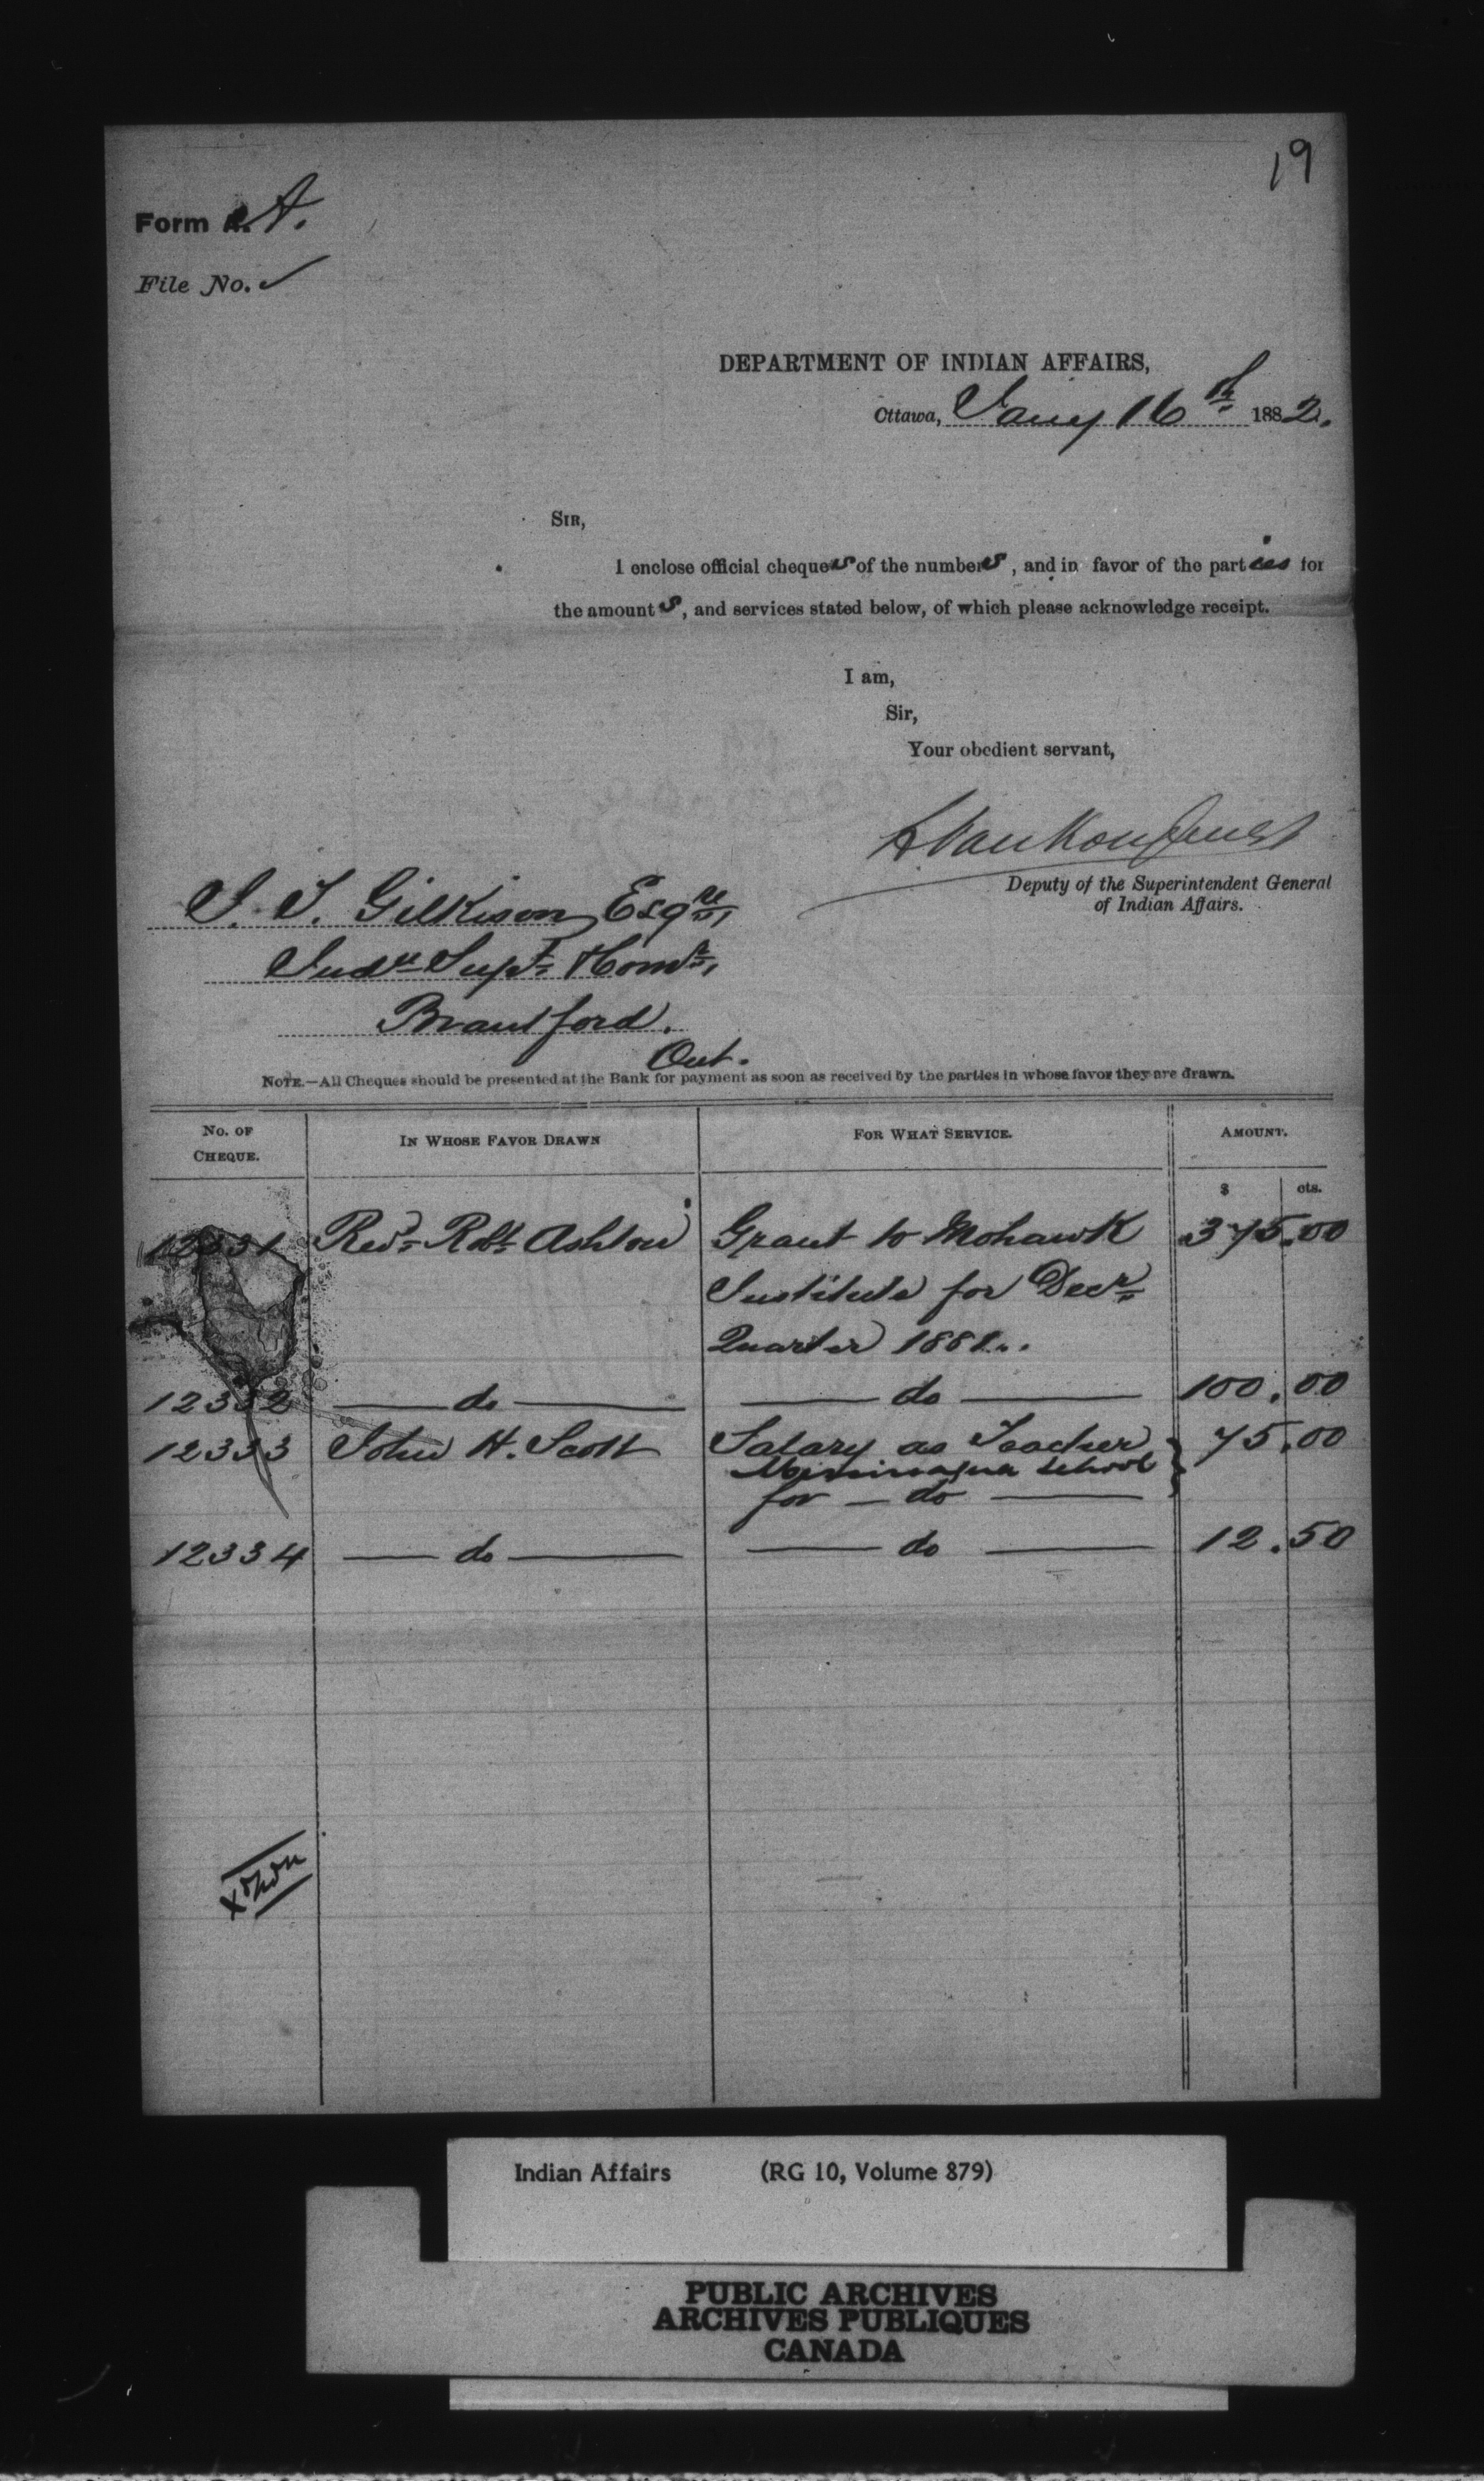 19
Form A.
File No. ✓
DEPARTMENT OF INDIAN AFFAIRS,
Ottawa, Jany 16th 1882.
SIR,
I enclose official cheques of the numbers, and in favor of the parties for
the amounts, and services stated below, of which please acknowledge receipt.
I am,
Sir,
Your obedient servant,
L VanKoughnet
Deputy of the Superintendent General
of Indian Affairs.
J. T. Gilkison, Esqre,
Indn Supt & Comr,
Brantford.
Ont.
NOTE.—All Cheques should be presented at the Bank for payment as soon as received by the parties in whose favor they are drawn.
No. OF CHEQUE. IN WHOSE FAVOR DRAWN FOR WHAT SERVICE. AMOUNT.
$ cts.
12331 Revd. Robt Ashton Grant to Mohawk 375.00
Institute for Decr
Quarter 1881.
12332 — do — — do — 100.00
12333 John H. Scott Salary as Teacher 75.00
Mississagua School
for — do —
12334 — do — — do — 12.50
Indian Affairs (RG 10, Volume 879)
PUBLIC ARCHIVES
ARCHIVES PUBLIQUES
CANADA